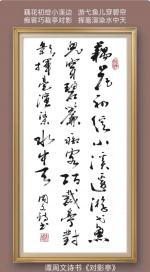 藕花初绽小溪边 游弋鱼儿穿碧帘
痴客巧裁亭对影 挥毫渲染水中天
藕花初绽小溪边游弋鱼
儿穿碧帘痴客巧裁亭对
影挥毫渲染水中天
周文诗书
谭周文诗书《对影亭》